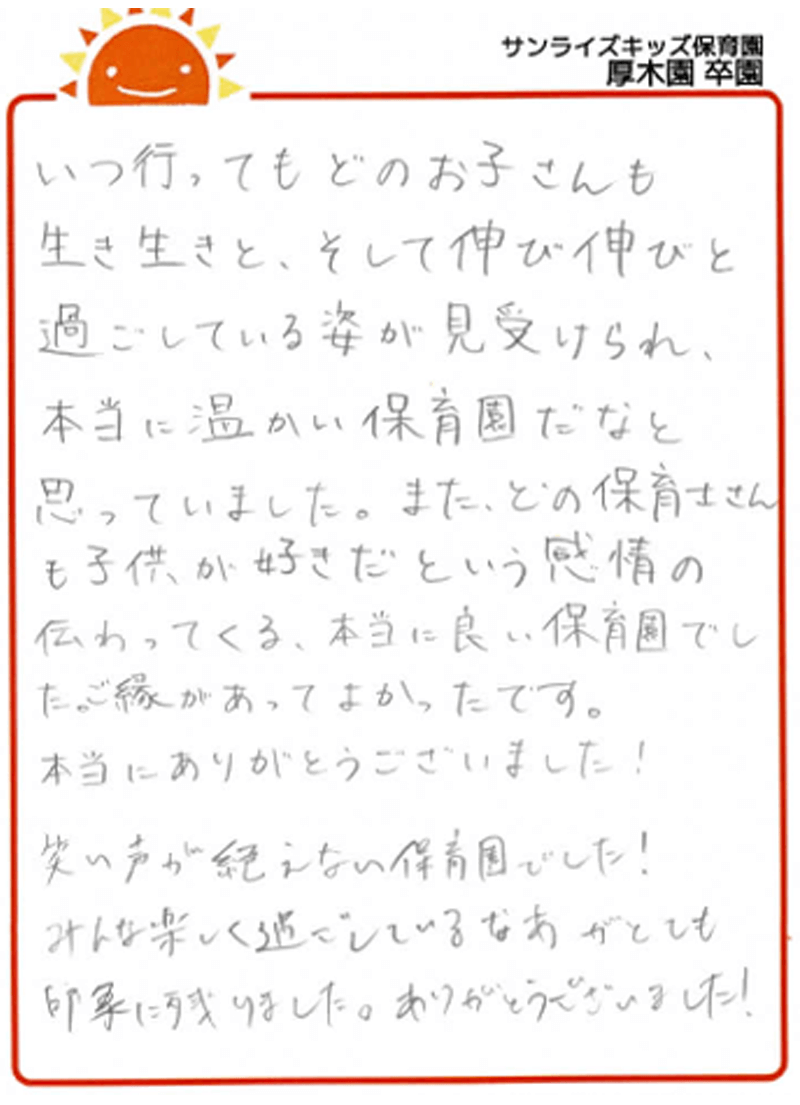 サンライズキッズ保育園
厚木園 卒園
いつ行ってもどのお子さんも
生き生きと、そして伸び伸びと
過ごしている姿が見受けられ、
本当に温かい保育園だなと
思っていました。また、どの保育士さん
も子供、が好きだという感情の
伝わってくる、本当に良い保育園でし
た。ご縁があってよかったです。
本当にありがとうございました!
笑い声が絶えない保育園でした!
みんな楽しく過ごしているなあ がとても
印象に残りました。ありがとうございました!